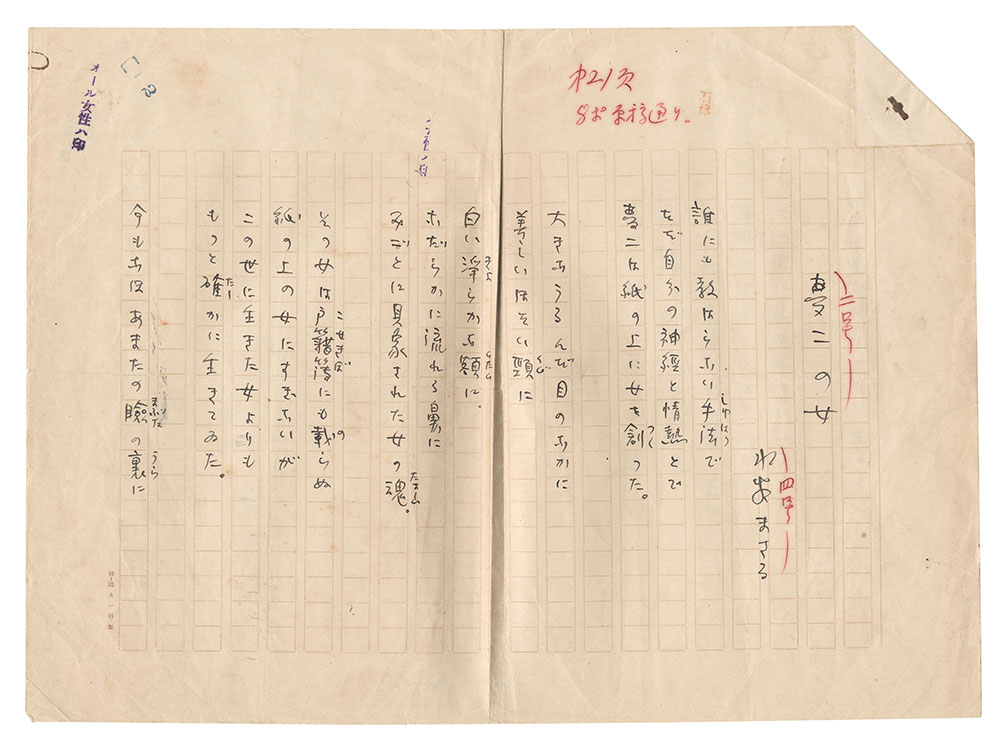 オール女性ハ印
才21頁
8ポ原稿通り。
二号
夢二の女
四号
まさる
誰にも教はらない手法で
しゅはう
たゞ自分の神経と情熱とで
夢二は紙の上に女を創つた。
つく
大きなうるんだ目のなかに
美しいほそい頸に
くび
白い浄らかな額に
きよ
ひたひ
なだらかに流れる鼻に
みごとに具象された女の魂。
たましひ
その女は戸籍簿にも載らぬ
こせきぼ
の
紙の上の女にすぎないが
この世に生きた女よりも
もつと確かに生きてゐた。
たし
今もなほあまたの瞼の裏に
まぶた
うら